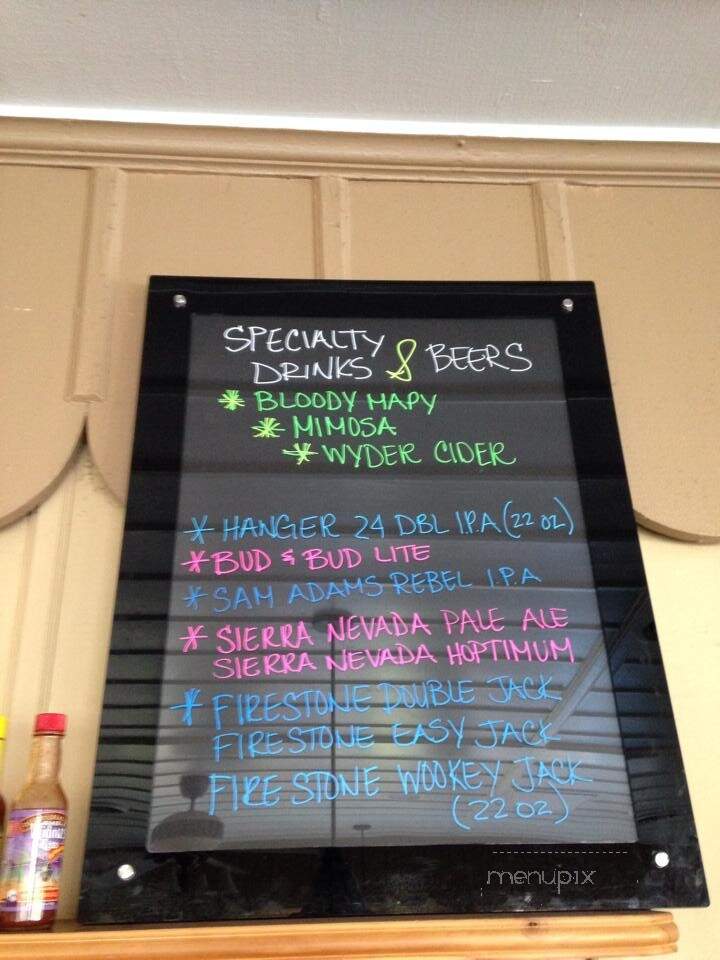 SPECIALTY
DRINKS & BEERS
* BLOODY MARY
* MIMOSA
* WYDER CIDER
* HANGER 24 DBL I.P.A (22 oz)
* BUD & BUD LITE
* SAM ADAMS REBEL I.P.A
* SIERRA NEVADA PALE ALE
SIERRA NEVADA HOPTIMUM
* FIRESTONE DOUBLE JACK
FIRESTONE EASY JACK
FIRESTONE WOOKEY JACK
(22 oz)
menupix